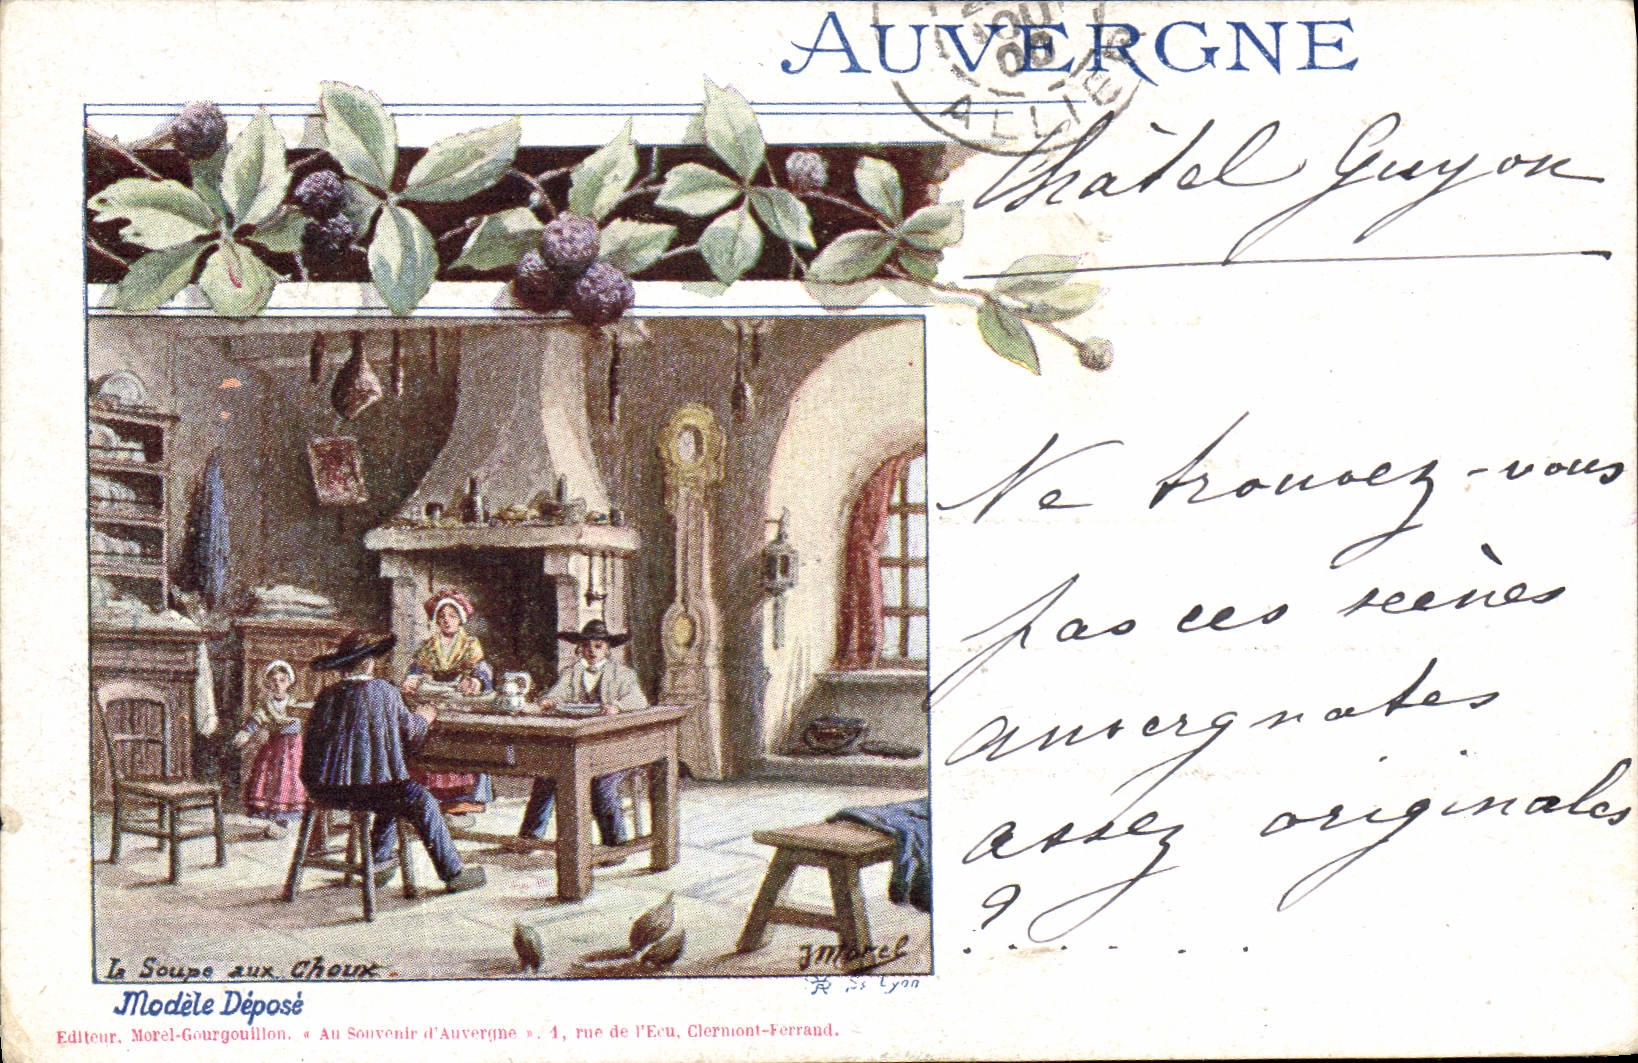 AUVERGNE
AOU
00
ALLIER
Châtel Guyon
Ne trouvez-vous
pas ces scènes
auvergnates
assez originales
? . . . . . .
La Soupe aux Choux.
J Morel
Lyon
Modèle Déposé
Editeur, Morel-Gourgouillon. « Au Souvenir d'Auvergne ». 1, rue de l'Ecu, Clermont-Ferrand.